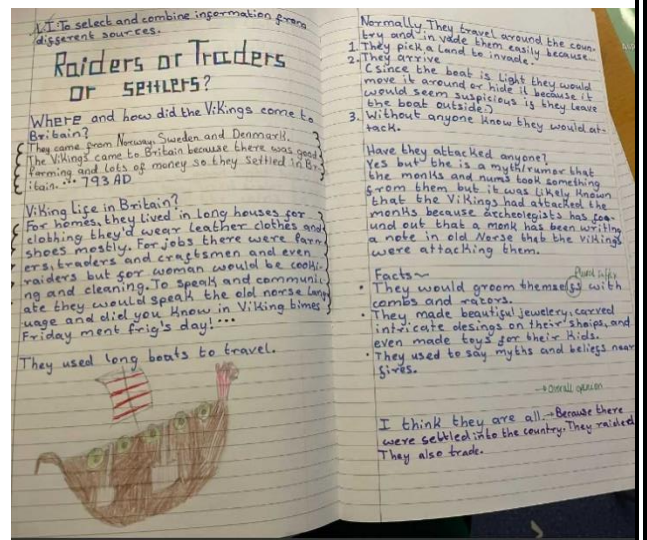 L.I To select and combine information from
different sources.
Raiders or Traders
or settlers?
Where and how did the Vikings come to
Britain?
They came from Norway, Sweden and Denmark.
The Vikings came to Britain because there was good
farming and lots of money so they settled in Br-
itain. ... 793 AD
Viking life in Britain?
For homes, they lived in long houses for
clothing they'd wear leather clothes and
shoes mostly. For jobs there were farm
ers, traders and craftsmen and even
raiders but for woman would be cooki-
ng and cleaning. To speak and communic
ate they would speak the old norse lang
uage and did you know in Viking times
Friday ment frig's day! ...
They used long boats to travel.
Normally They travel around the coun-
try and in vade them easily because
1. They pick a land to invade.
2. They arrive
(since the boat is light they would
move it around or hide it because it
would seem suspicious if they leave
the boat outside.)
3. Without anyone know they would at-
tack.
Have they attacked anyone?
Yes but the is a myth/rumor that
the monks and nuns took something
from them but it was likely known
that the Vikings had attacked the
monks because archeolegists has fou-
und out that a monk has been writing
a note in old Norse that the Vikings
were attacking them.
Facts~
• They would groom themselfs with
combs and razors.
• They made beautiful jewelery, carved
intricate desings on their ships, and
even made toys for their kids.
• They used to say myths and beliefs near
fires.
→ Overall opinion
I think they are all.→Because there
were settled into the country. They raided
They also trade.